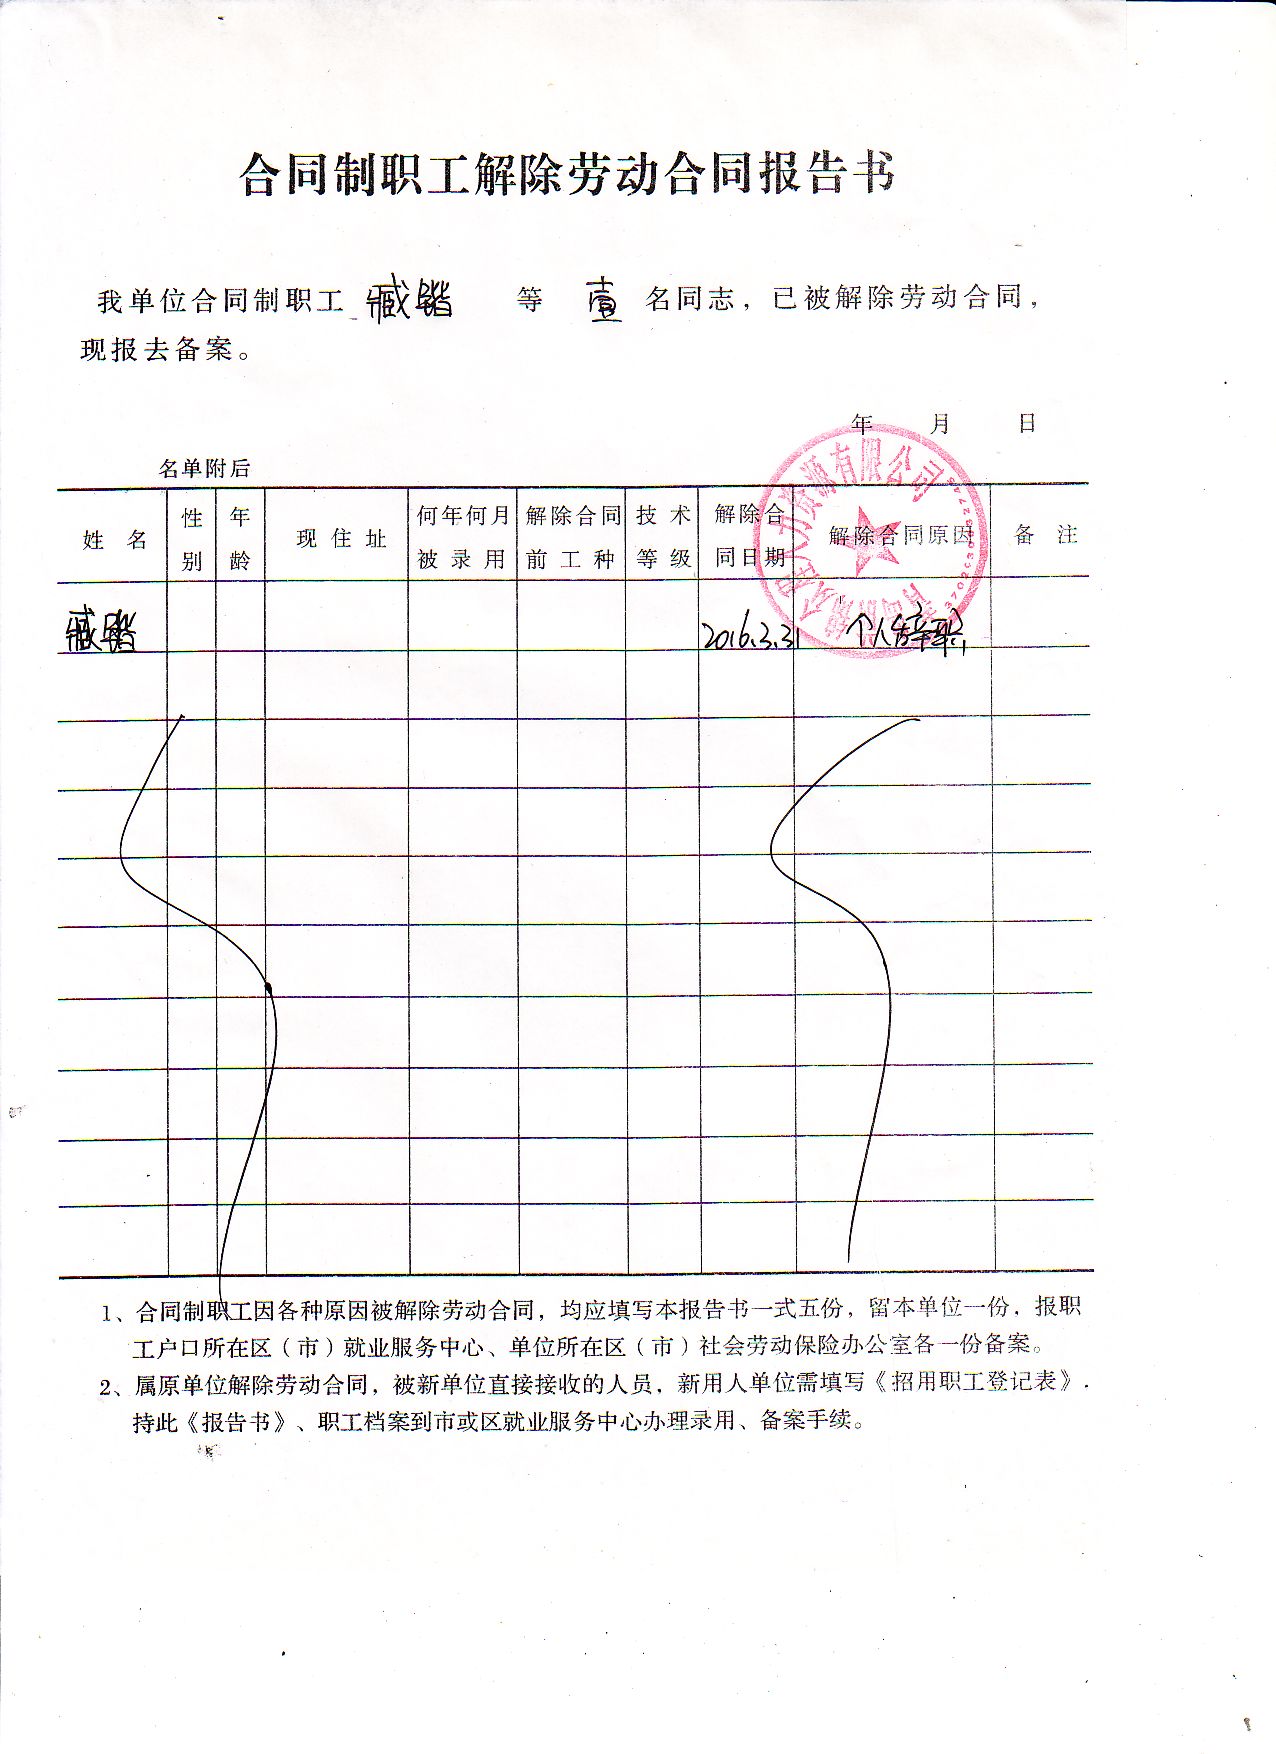 合同制职工解除劳动合同报告书
我单位合同制职工 臧锴 等 壹 名同志，已被解除劳动合同，
现报去备案。
年 月 日
名单附后
姓名 性别 年龄 现住址 何年何月被录用 解除合同前工种 技术等级 解除合同日期 解除合同原因 备注
臧锴 2016.3.31 个人辞职
人力资源有限公司
1、合同制职工因各种原因被解除劳动合同，均应填写本报告书一式五份，留本单位一份，报职
工户口所在区（市）就业服务中心、单位所在区（市）社会劳动保险办公室各一份备案。
2、属原单位解除劳动合同，被新单位直接接收的人员，新用人单位需填写《招用职工登记表》.
持此《报告书》、职工档案到市或区就业服务中心办理录用、备案手续。